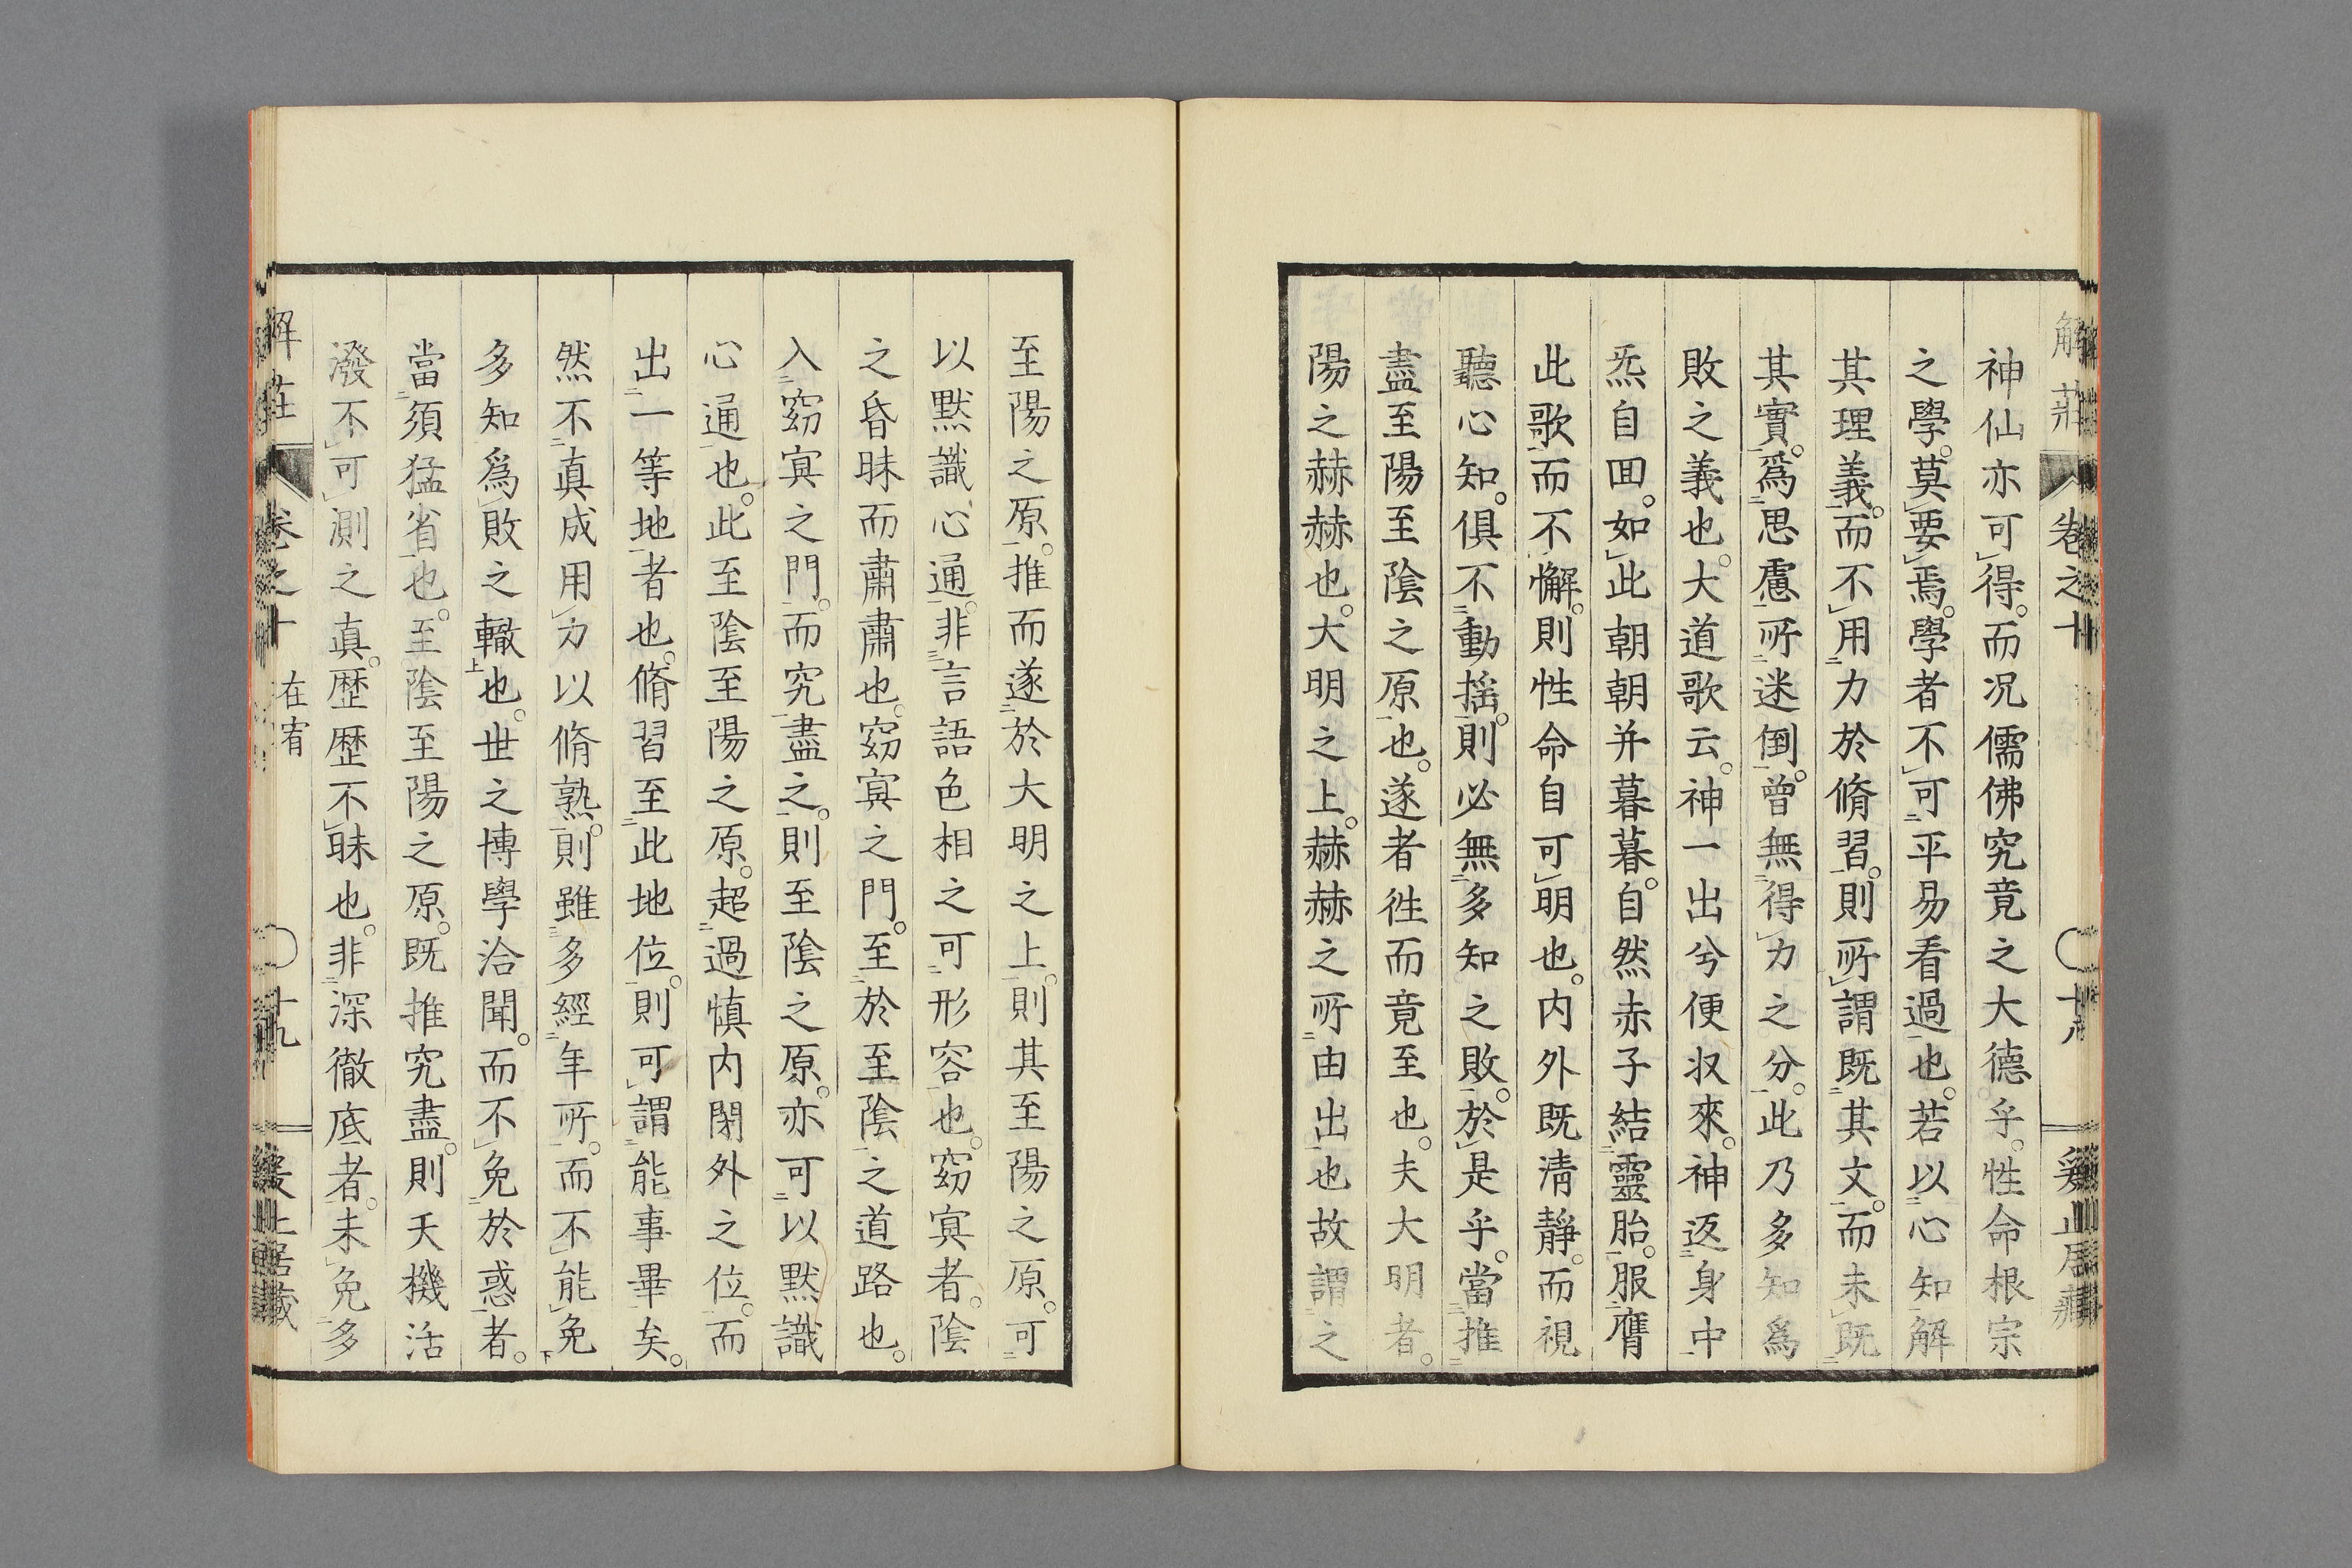 解莊 卷之十 十八
神仙亦可得。而况儒佛究竟之大德乎。性命根宗
之學。莫要焉。學者不可平易看過也。若以心知解
其理義。而不用力於脩習。則所謂既其文。而未既
其實。爲思慮所迷倒。曾無得力之分。此乃多知爲
敗之義也。大道歌云。神一出兮便收來。神返身中
炁自囬。如此朝朝并暮暮。自然赤子結靈胎。服膺
此歌而不懈。則性命自可明也。内外既淸靜。而視
聽心知。俱不動搖。則必無多知之敗。於是乎。當推
盡至陽至陰之原也。遂者徃而竟至也。夫大明者。
陽之赫赫也。大明之上。赫赫之所由出也故謂之
至陽之原。推而遂於大明之上。則其至陽之原。可
以默識心通。非言語色相之可形容也。窈冥者。陰
之昏昧而肅肅也。窈冥之門。至於至陰之道路也。
入窈冥之門。而究盡之。則至陰之原。亦可以默識
心通也。此至陰至陽之原。超過慎内閉外之位。而
出一等地者也。脩習至此地位。則可謂能事畢矣。
然不真成用力以脩熟。則雖多經年所。而不能免
多知爲敗之轍也。世之博學洽聞。而不免於惑者。
當須猛省也。至陰至陽之原。既推究盡。則天機活
潑不可測之真。歷歷不昧也。非深徹底者。未免多
解莊 卷之十 在宥 十九